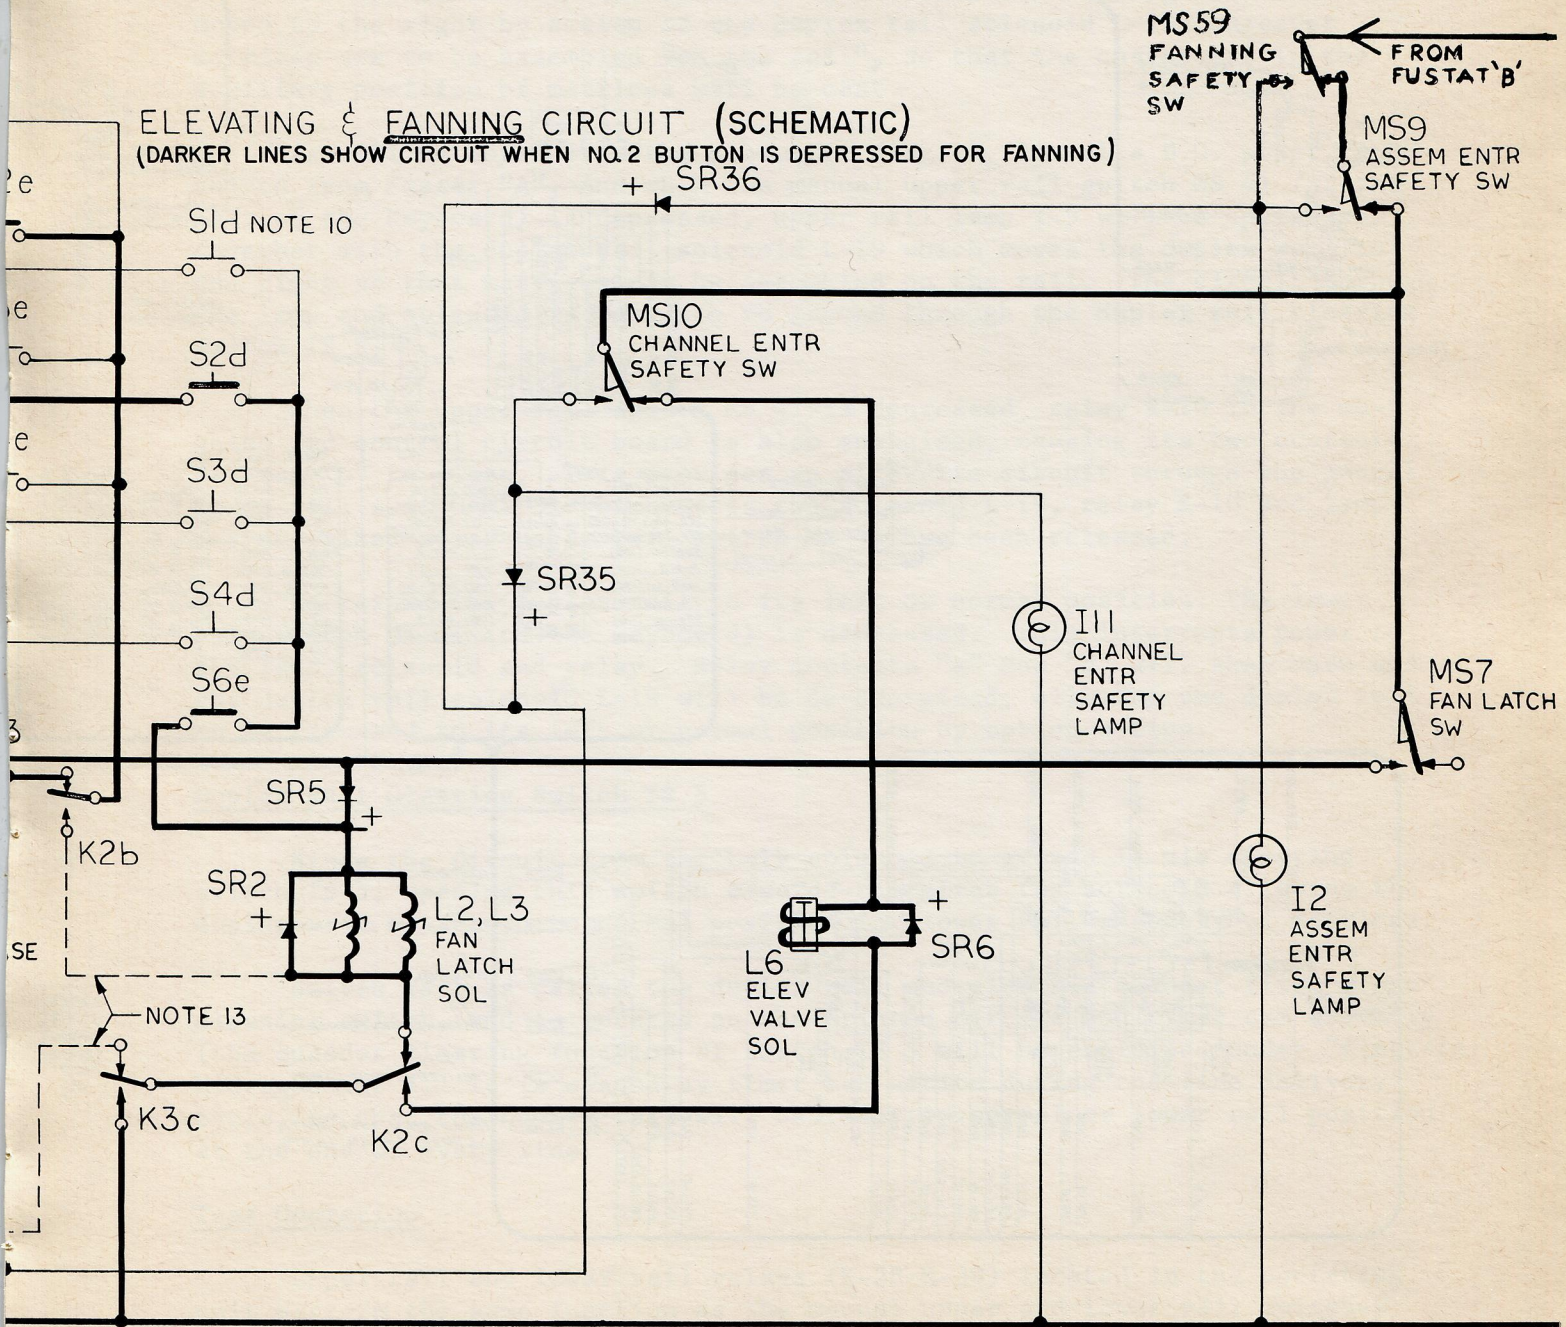 MS59
FANNING
SAFETY
SW
FROM
FUSTAT 'B'
ELEVATING & FANNING CIRCUIT (SCHEMATIC)
(DARKER LINES SHOW CIRCUIT WHEN NO.2 BUTTON IS DEPRESSED FOR FANNING)
MS9
ASSEM ENTR
SAFETY SW
+ SR36
S1d NOTE 10
e
e
e
MS10
CHANNEL ENTR
SAFETY SW
S2d
S3d
SR35
+
S4d
I11
CHANNEL
ENTR
SAFETY
LAMP
S6e
MS7
FAN LATCH
SW
3
SR5
+
K2b
SR2
+
L2, L3
FAN
LATCH
SOL
SE
+
SR6
L6
ELEV
VALVE
SOL
I2
ASSEM
ENTR
SAFETY
LAMP
NOTE 13
K3c
K2c